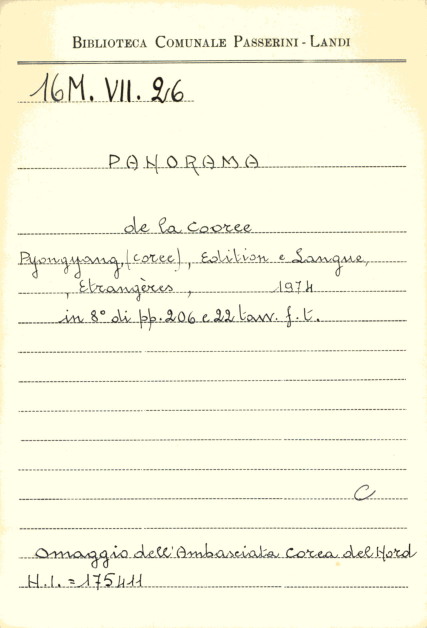 BIBLIOTECA COMUNALE PASSERINI - LANDI
16M. VII. 26
PANORAMA
de la Cooree
Pyongyang, (coree), Edition e Langue,
, Etrangères , 1974
in 8° di pp. 206 e 22 tavv. f. t.
C
Omaggio dell'Ambasciata Corea del Nord
N.I. = 175411